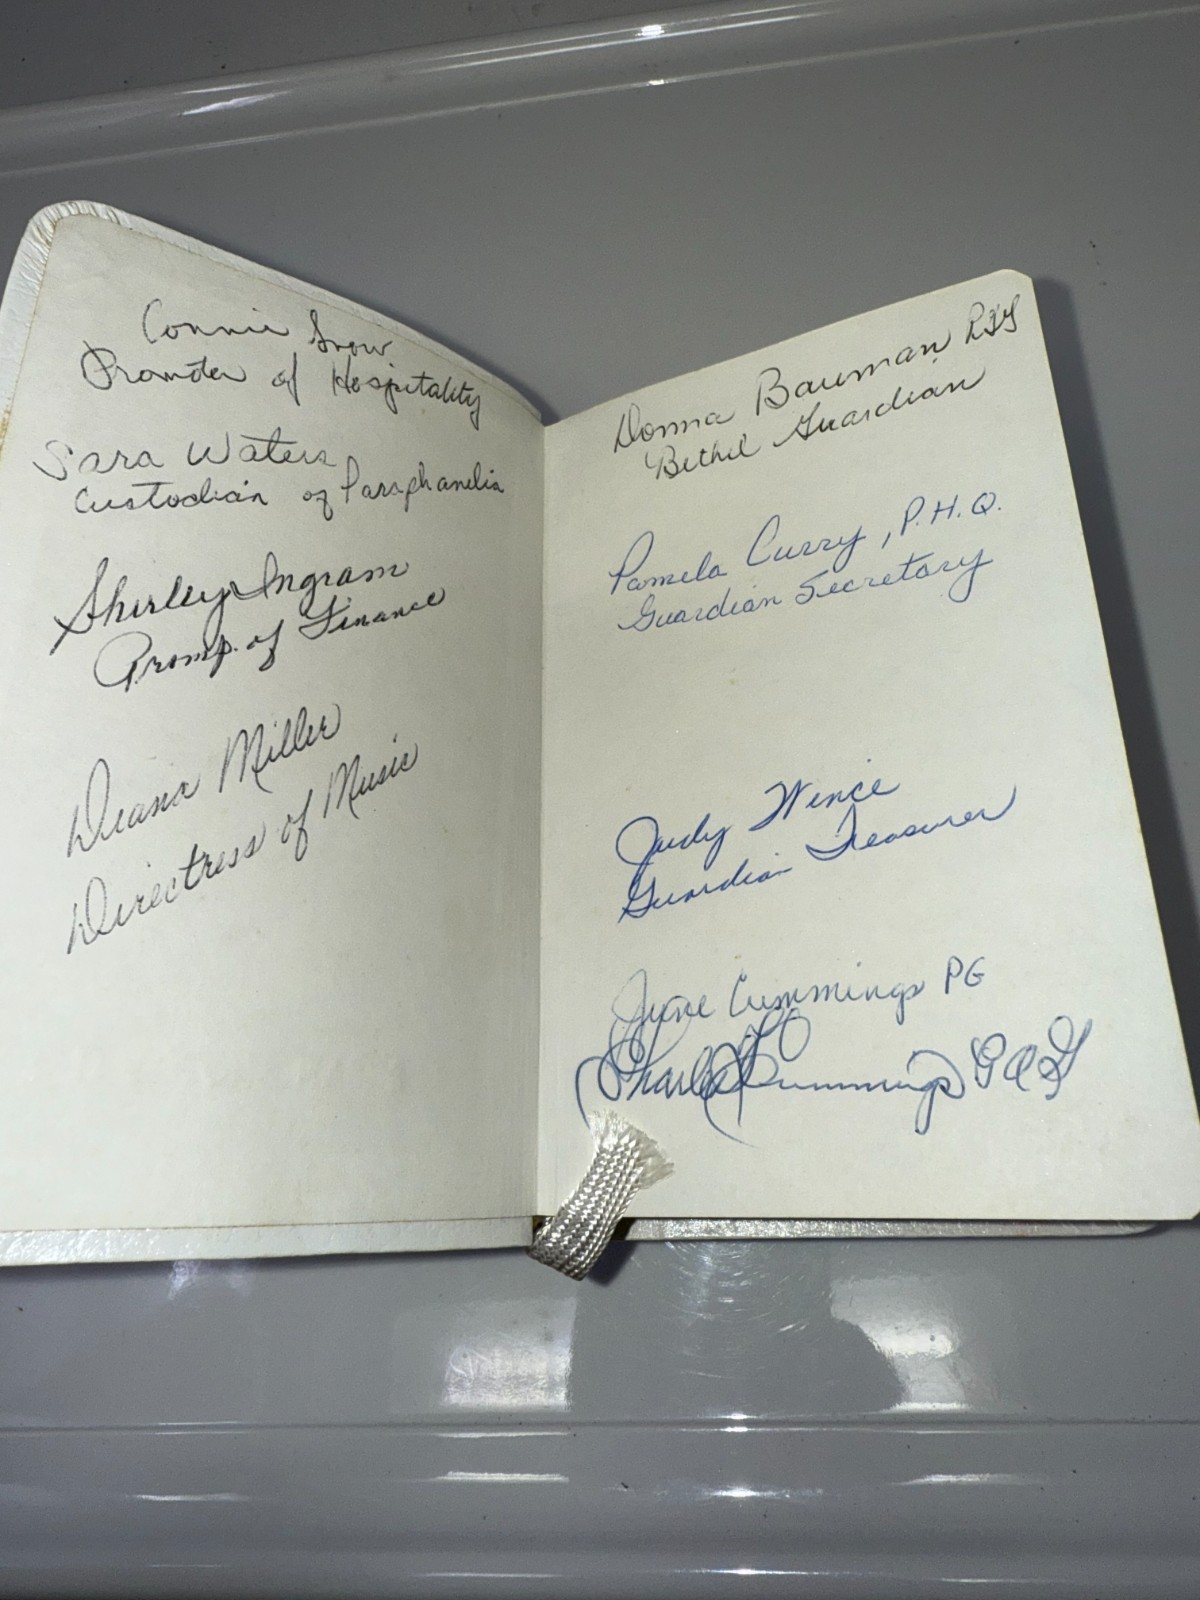 Connie Snow
Promoter of Hospitality
Sara Waters
Custodian of Paraphanelia
Shirley Ingram
Promp. of Finance
Deana Miller
Directress of Music
Donna Bauman
Bethel Guardian
Pamela Curry, P.H.Q.
Guardian Secretary
Judy Wince
Guardian Treasurer
June Cummings PG
Charles Cummings